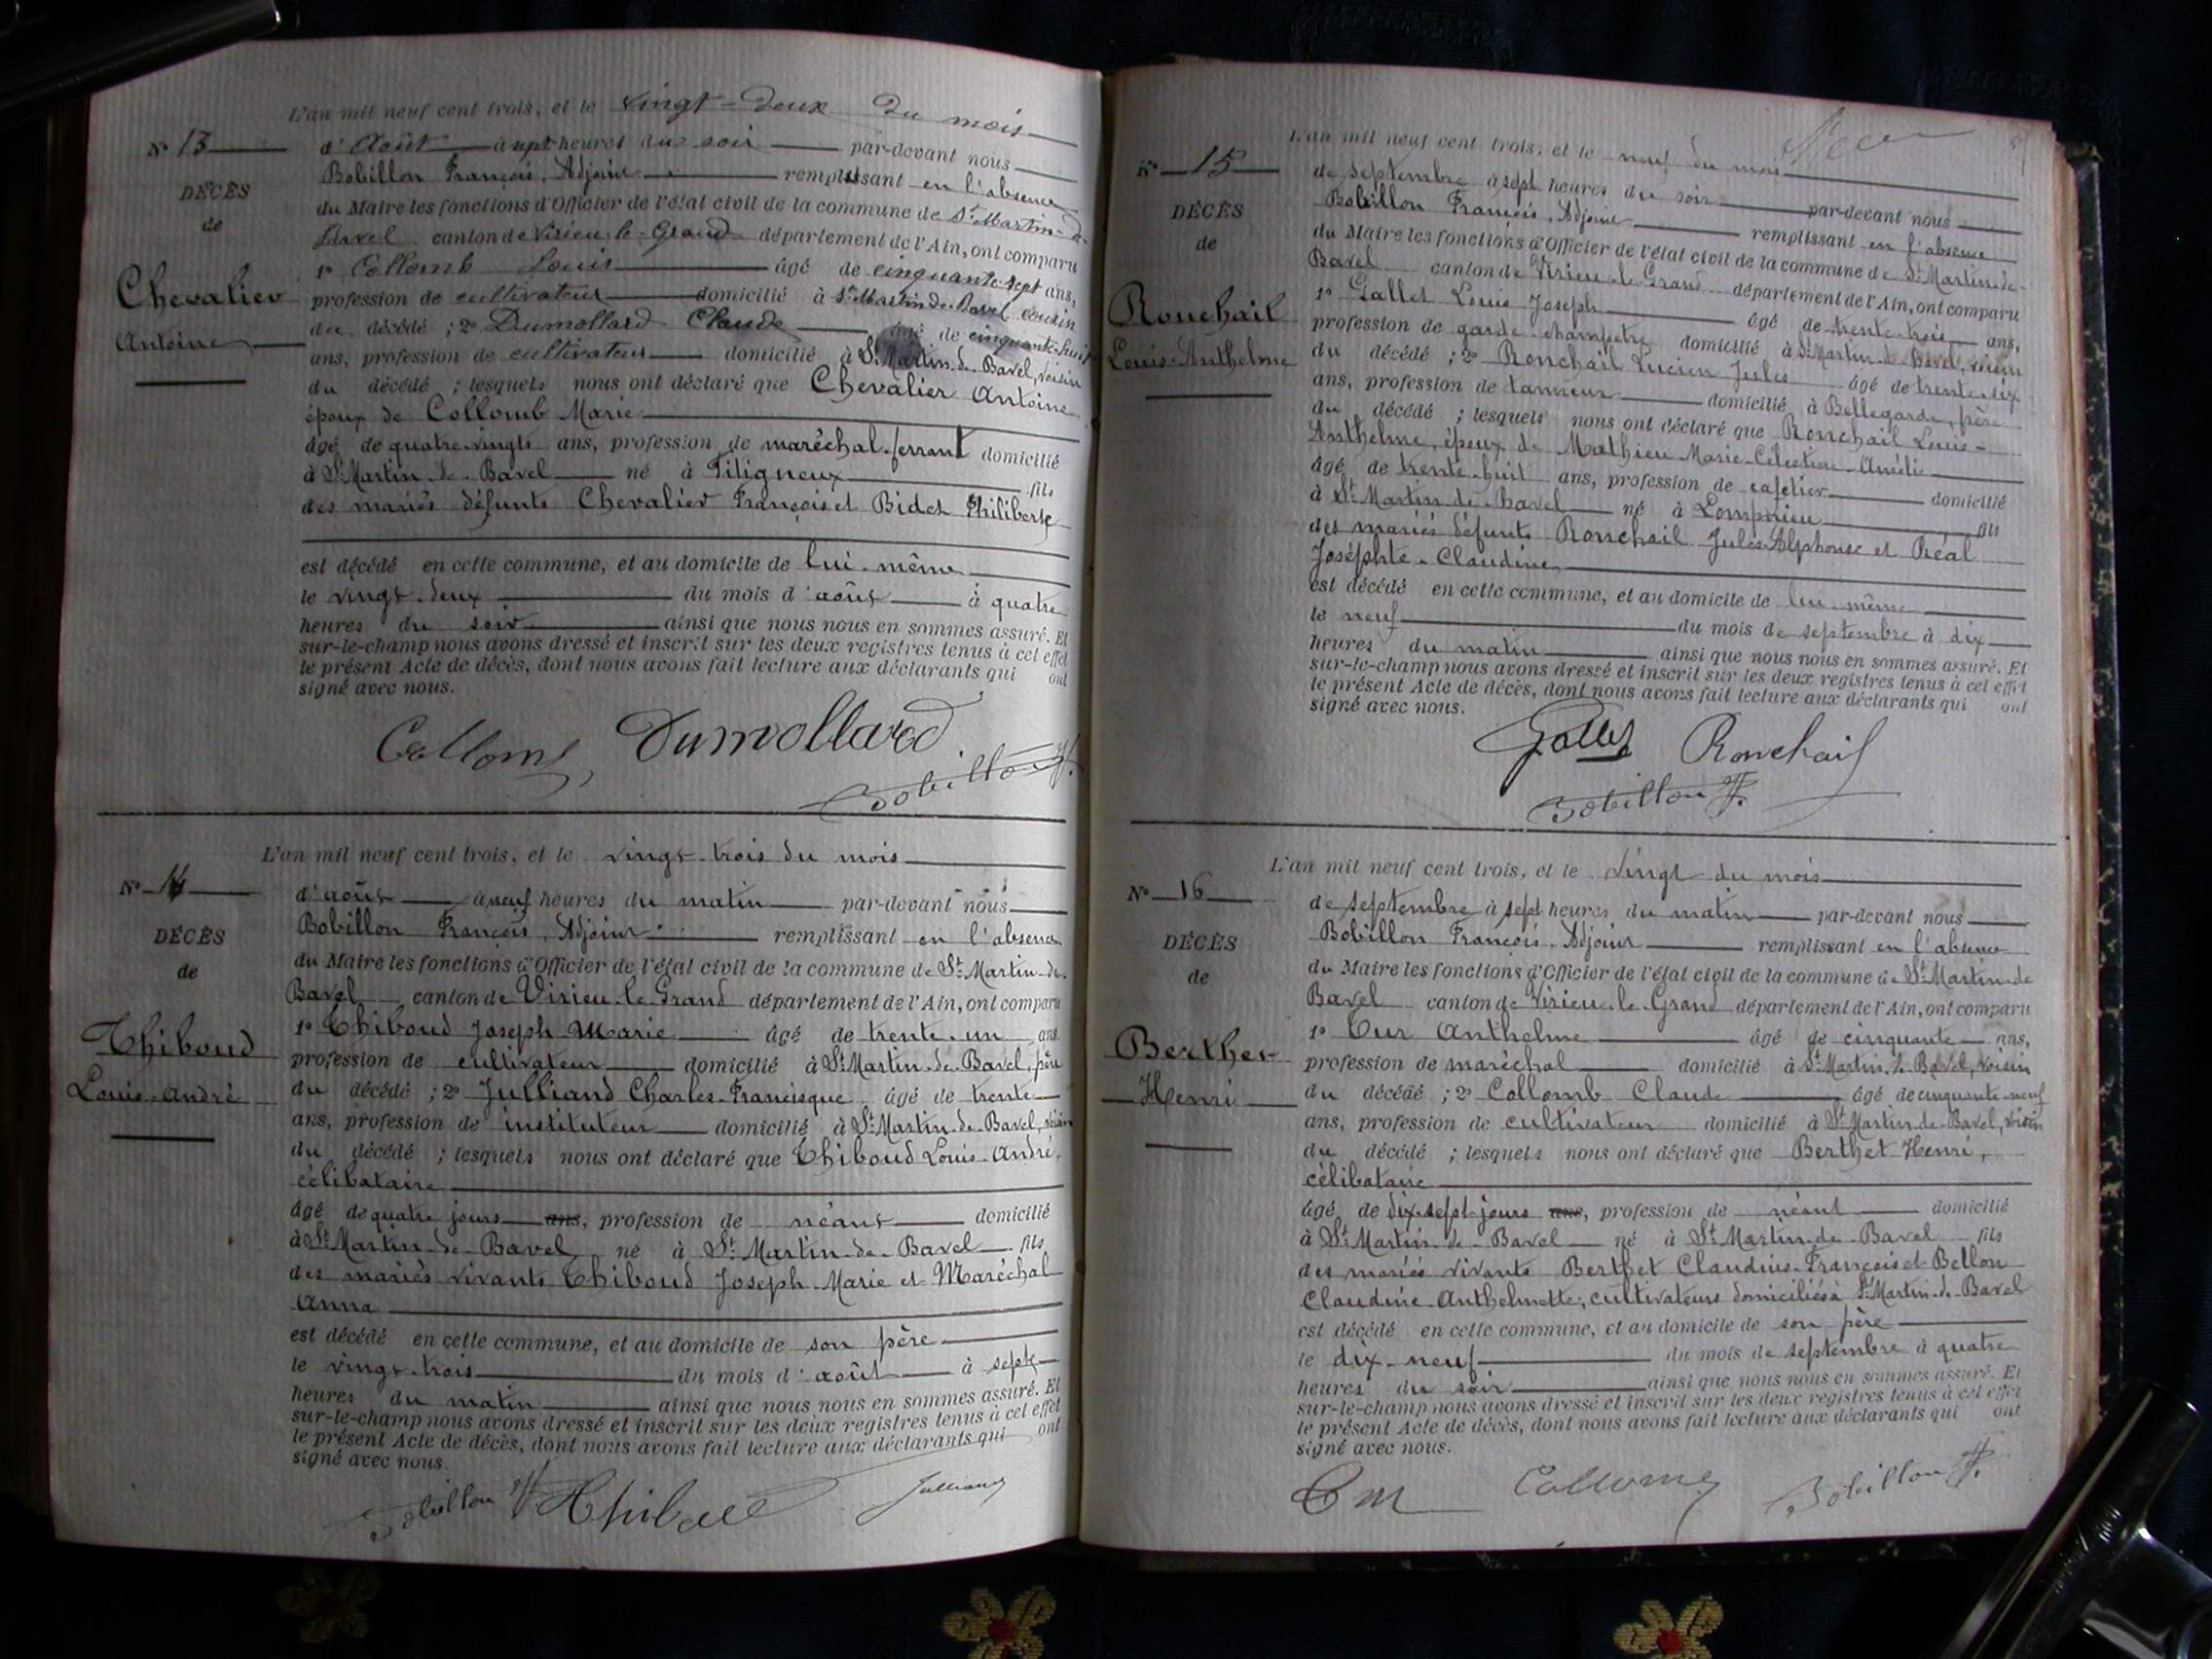 L'an mil neuf cent trois, et le vingt-deux du mois
N° 13
d'Août à sept heures du soir par-devant nous
DÉCÈS
de
Chevalier
Antoine
Bobillon François, Adjoint remplissant en l'absence
du Maire les fonctions d'Officier de l'état civil de la commune de St Martin-de-
Bavel canton de Virieu-le-Grand département de l'Ain, ont comparu
1° Collomb Louis âgé de cinquante-sept ans,
profession de cultivateur domicilié à St Martin-de-Bavel cousin
du décédé ; 2° Dumollard Claude âgé de cinquante-huit
ans, profession de cultivateur domicilié à St Martin-de-Bavel, voisin
du décédé ; lesquels nous ont déclaré que Chevalier Antoine
époux de Collomb Marie
âgé de quatre-vingts ans, profession de maréchal-ferrant domicilié
à St Martin-de-Bavel né à fils
des mariés défunts Chevalier François et Bidet Philiberte
est décédé en cette commune, et au domicile de lui-même
le vingt-deux du mois d'août à quatre
heures du soir ainsi que nous nous en sommes assuré. Et
sur-le-champ nous avons dressé et inscrit sur les deux registres tenus à cet effet
le présent Acte de décès, dont nous avons fait lecture aux déclarants qui ont
signé avec nous.
Collomb Dumollard
Bobillon F.
L'an mil neuf cent trois, et le vingt-trois du mois
N° 14
DÉCÈS
de
Thiboud
Louis-André
d'août à neuf heures du matin par-devant nous
Bobillon François, Adjoint remplissant en l'absence
du Maire les fonctions d'Officier de l'état civil de la commune de St Martin-de-
Bavel canton de Virieu-le-Grand département de l'Ain, ont comparu
1° Thiboud Joseph Marie âgé de trente-un ans
profession de cultivateur domicilié à St Martin-de-Bavel, père
du décédé ; 2° Julliand Charles-Francisque âgé de trente
ans, profession de instituteur domicilié à St Martin-de-Bavel, voisin
du décédé ; lesquels nous ont déclaré que Thiboud Louis-André,
célibataire
âgé de quatre jours ans, profession de néant domicilié
à St Martin-de-Bavel né à St Martin-de-Bavel fils
des mariés vivants Thiboud Joseph-Marie et Maréchal
Anna
est décédé en cette commune, et au domicile de son père
le vingt-trois du mois d'août à sept
heures du matin ainsi que nous nous en sommes assuré. Et
sur-le-champ nous avons dressé et inscrit sur les deux registres tenus à cet effet
le présent Acte de décès, dont nous avons fait lecture aux déclarants qui ont
signé avec nous.
Bobillon F. Thiboud Julliand
L'an mil neuf cent trois, et le neuf du mois
N° 15
DÉCÈS
de
Ronchail
Louis-Anthelme
de septembre à sept heures du soir par-devant nous
Bobillon François, Adjoint remplissant en l'absence
du Maire les fonctions d'Officier de l'état civil de la commune de St Martin-de-
Bavel canton de Virieu-le-Grand département de l'Ain, ont comparu
1° Gallet Louis Joseph âgé de trente-trois ans,
profession de garde-champêtre domicilié à St Martin-de-Bavel, voisin
du décédé ; 2° Ronchail Lucien Jules âgé de trente-six
ans, profession de tanneur domicilié à Bellegarde, frère
du décédé ; lesquels nous ont déclaré que Ronchail Louis-
Anthelme, époux de Mathieu Marie-Célestine-Amélie
âgé de trente-huit ans, profession de cafetier domicilié
à St Martin-de-Bavel né à Lompnieu fils
des mariés défunts Ronchail Jules-Alphonse et Réal
Joséphte-Claudine
est décédé en cette commune, et au domicile de lui-même
le neuf du mois de septembre à dix
heures du matin ainsi que nous nous en sommes assuré. Et
sur-le-champ nous avons dressé et inscrit sur les deux registres tenus à cet effet
le présent Acte de décès, dont nous avons fait lecture aux déclarants qui ont
signé avec nous.
Gallet Ronchail
Bobillon F.
L'an mil neuf cent trois, et le vingt du mois
N° 16
DÉCÈS
de
Berthet
Henri
de septembre à sept heures du matin par-devant nous
Bobillon François, Adjoint remplissant en l'absence
du Maire les fonctions d'Officier de l'état civil de la commune de St Martin-de
Bavel canton de Virieu-le-Grand département de l'Ain, ont comparu
1° Anthelme âgé de cinquante ans,
profession de maréchal domicilié à St Martin-de-Bavel, voisin
du décédé ; 2° Collomb Claude âgé de cinquante-neuf
ans, profession de cultivateur domicilié à St Martin-de-Bavel, voisin
du décédé ; lesquels nous ont déclaré que Berthet Henri,
célibataire
âgé de dix-sept jours ans, profession de néant domicilié
à St Martin-de-Bavel né à St Martin-de-Bavel fils
des mariés vivants Berthet Claudius-François et Bellon
Claudine-Anthelmette, cultivateurs domiciliés à St Martin-de-Bavel
est décédé en cette commune, et au domicile de son père
le dix-neuf du mois de septembre à quatre
heures du soir ainsi que nous nous en sommes assuré. Et
sur-le-champ nous avons dressé et inscrit sur les deux registres tenus à cet effet
le présent Acte de décès, dont nous avons fait lecture aux déclarants qui ont
signé avec nous.
Collomb Bobillon F.